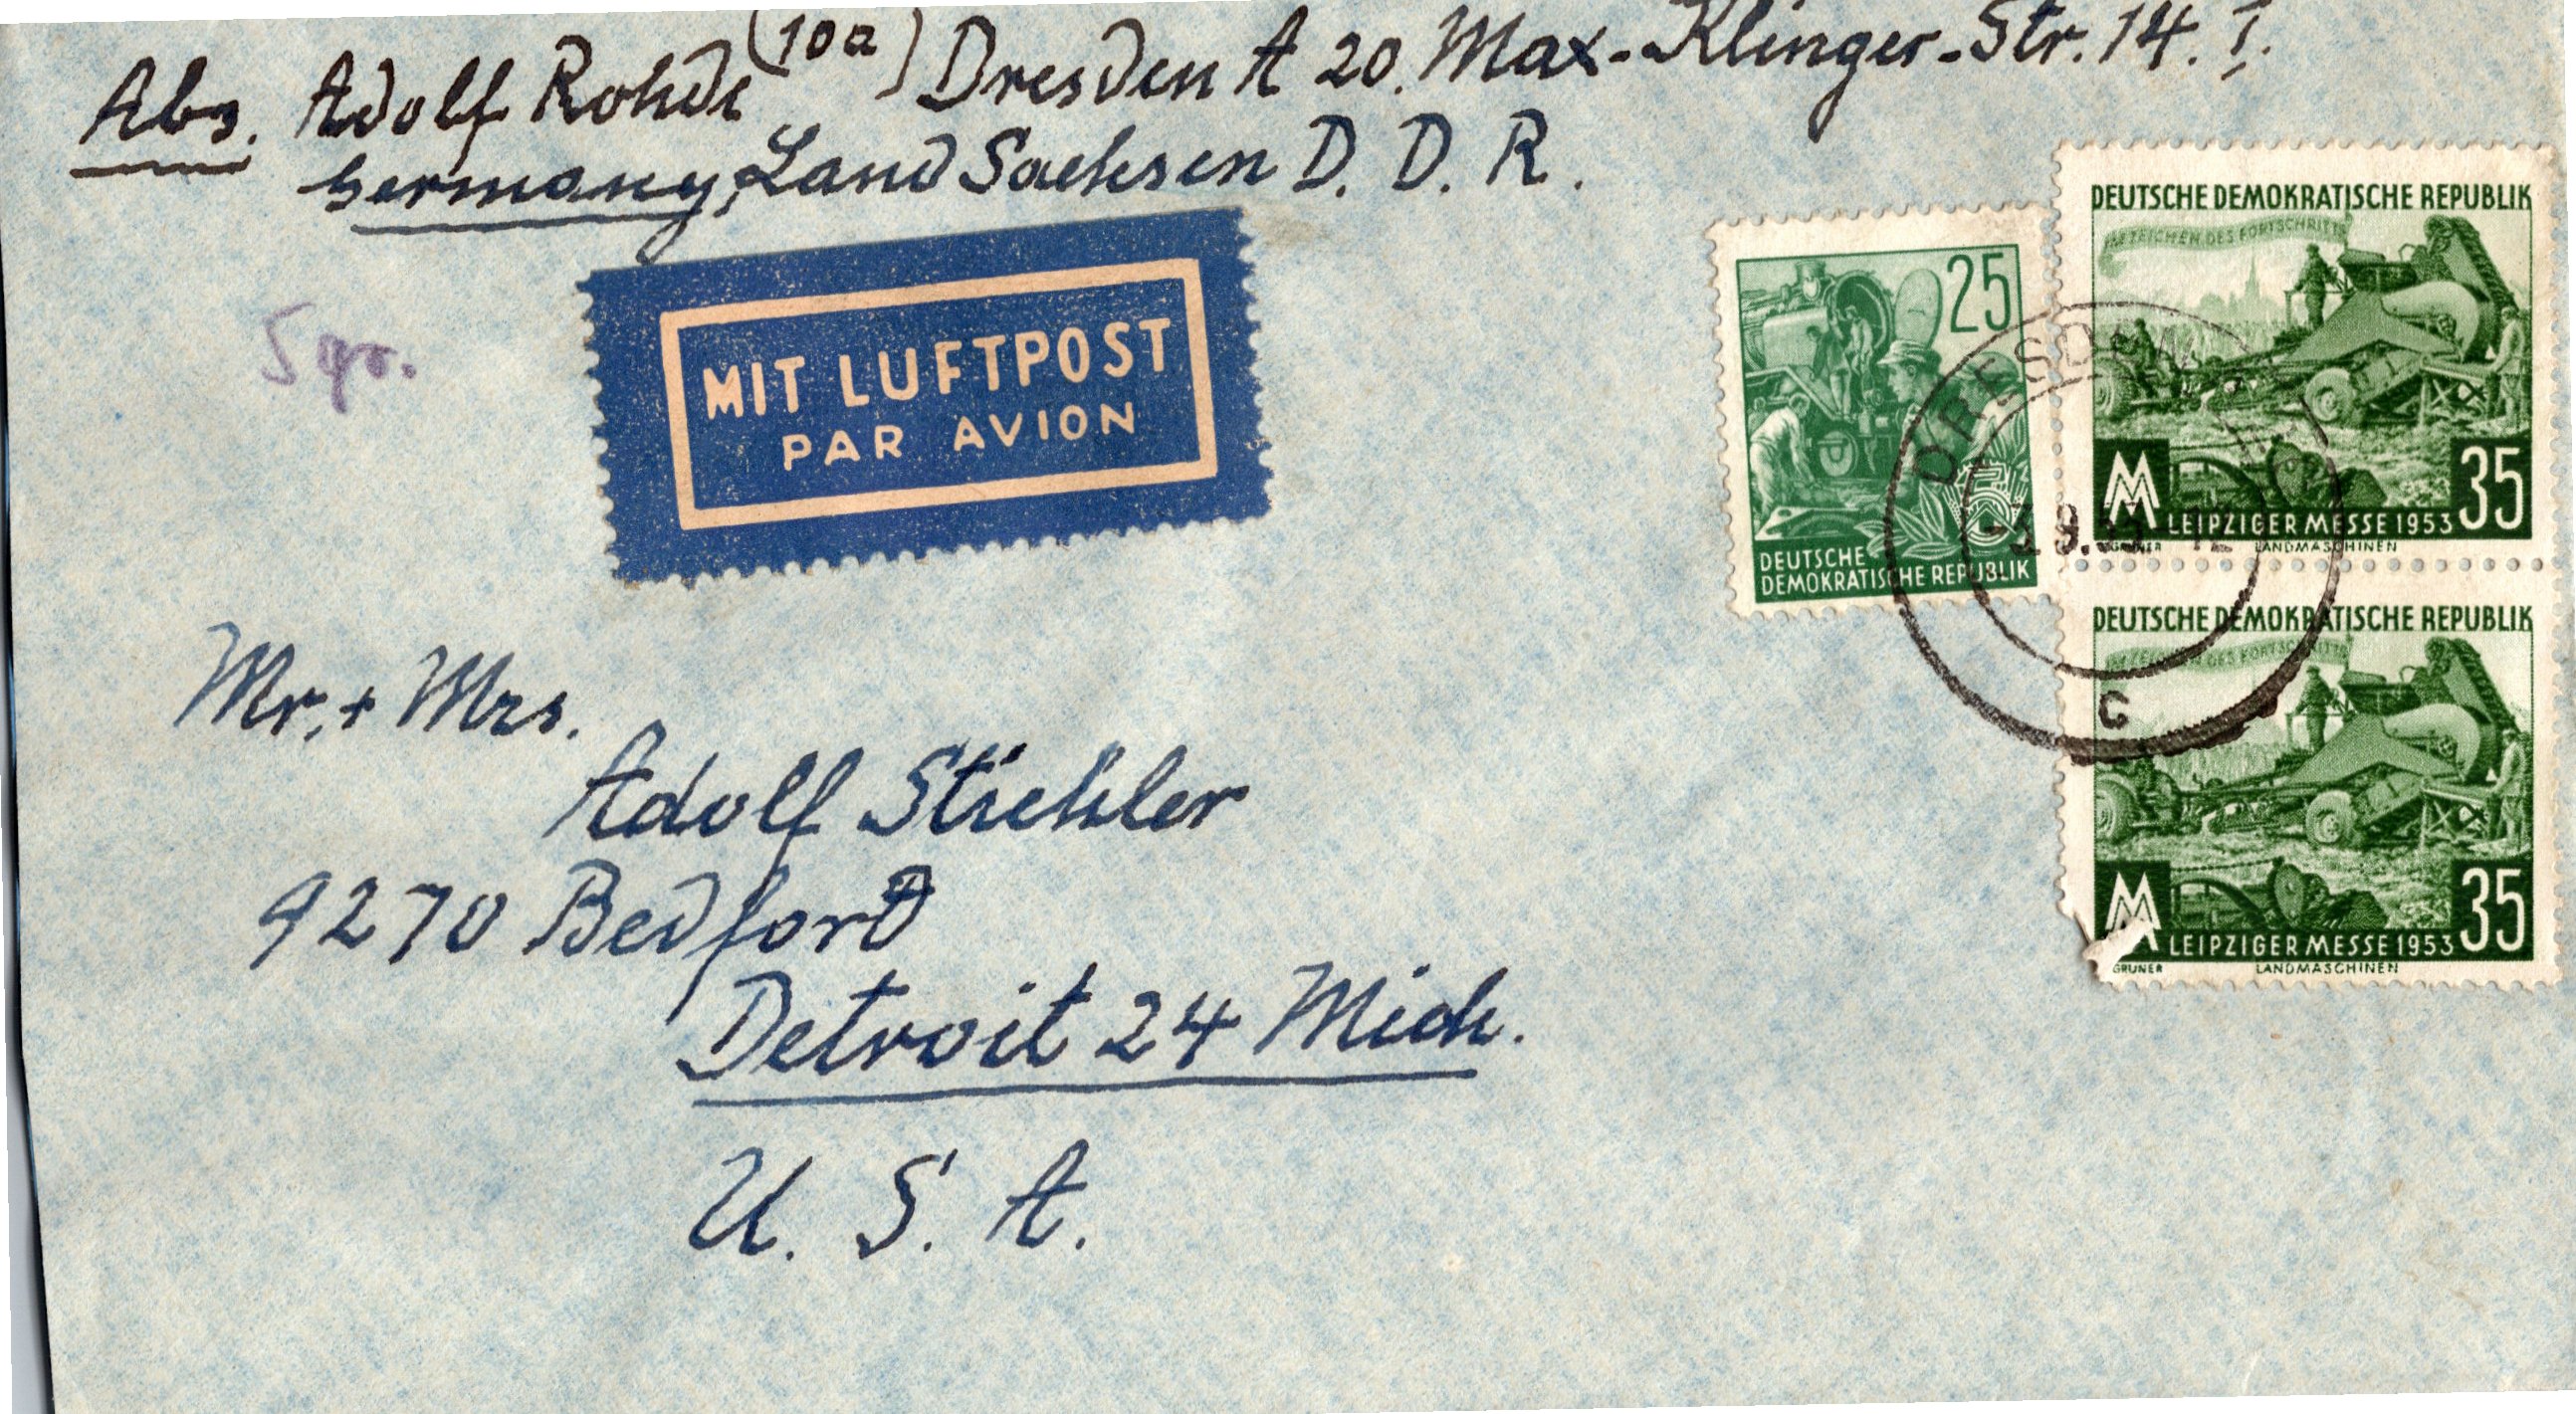 Abs. Adolf Rohde (10a) Dresden A 20. Max-Klinger-Str. 14. I.
Germany, Land Sachsen D. D. R.
5 gr.
MIT LUFTPOST
PAR AVION
25
DEUTSCHE
DEMOKRATISCHE REPUBLIK
DEUTSCHE DEMOKRATISCHE REPUBLIK
ZEICHEN DES FORTSCHRITTS
35
LEIPZIGER MESSE 1953
GRUNER LANDMASCHINEN
DRESDEN
C
DEUTSCHE DEMOKRATISCHE REPUBLIK
ZEICHEN DES FORTSCHRITTS
35
LEIPZIGER MESSE 1953
GRUNER LANDMASCHINEN
Mr. + Mrs.
Adolf Stiehler
9270 Bedford
Detroit 24 Mich.
U. S. A.